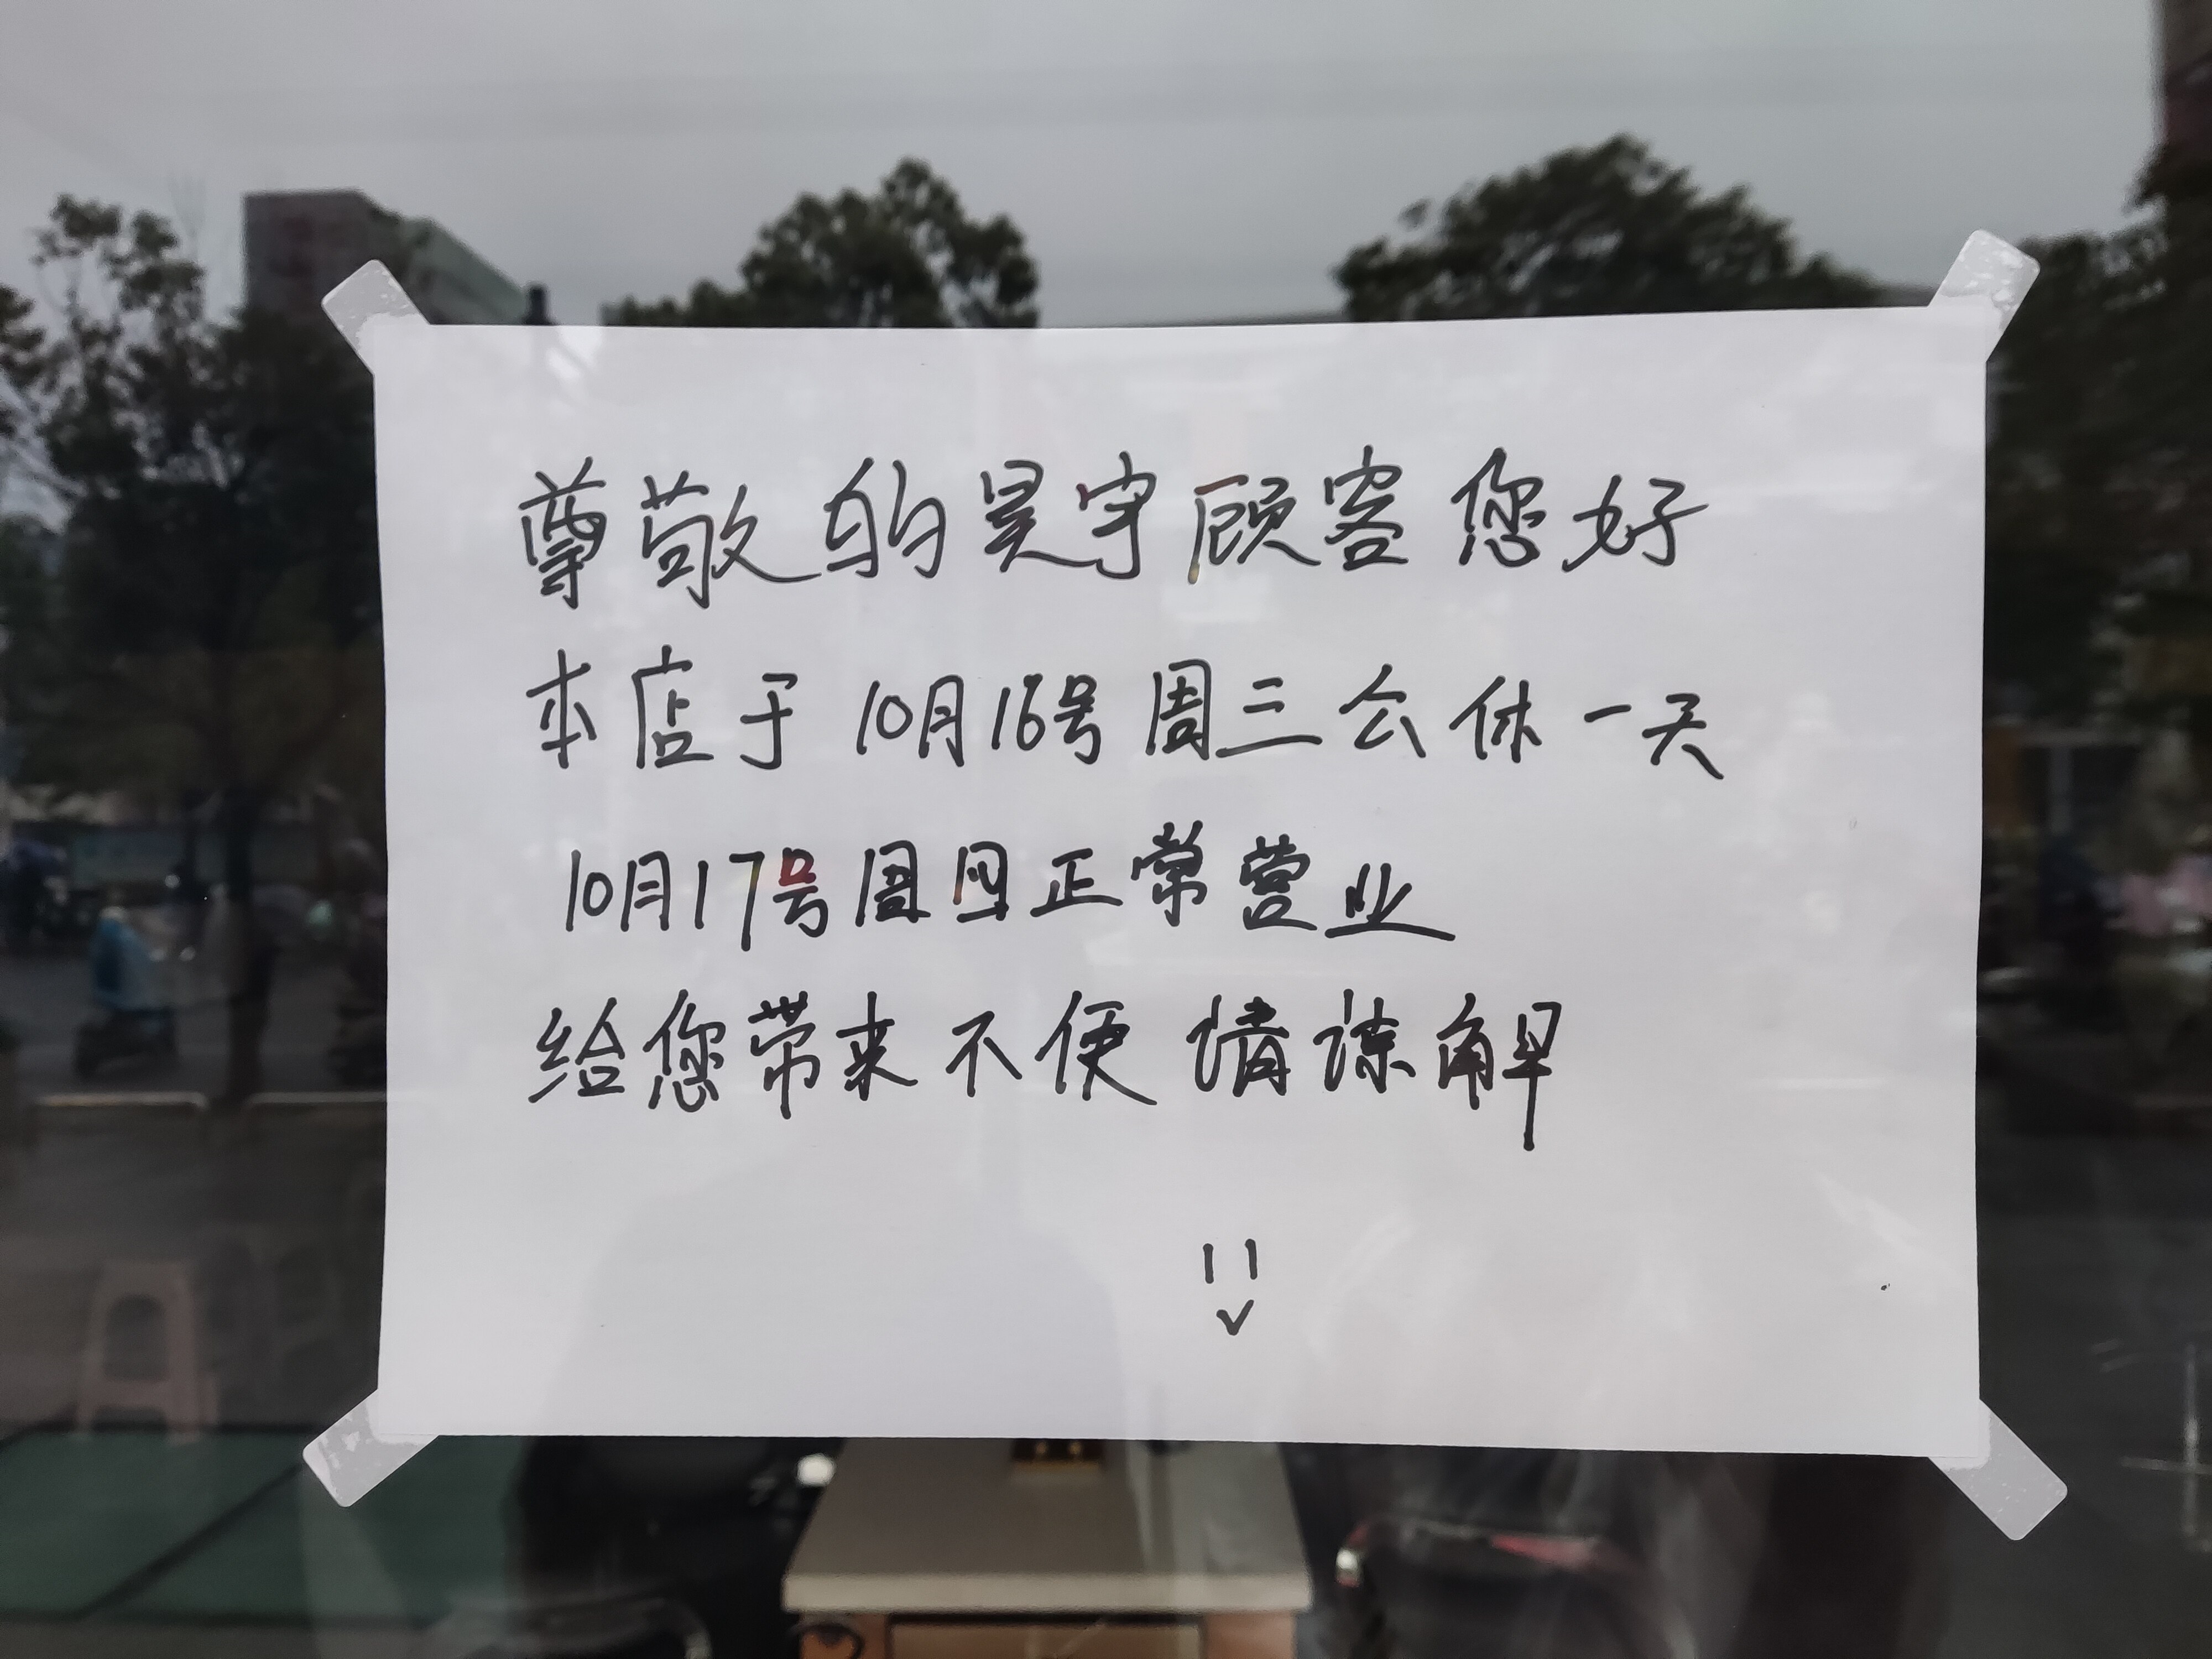 尊敬的昊宇顾客您好
本店于10月16号周三公休一天
10月17号周四正常营业
给您带来不便 请谅解